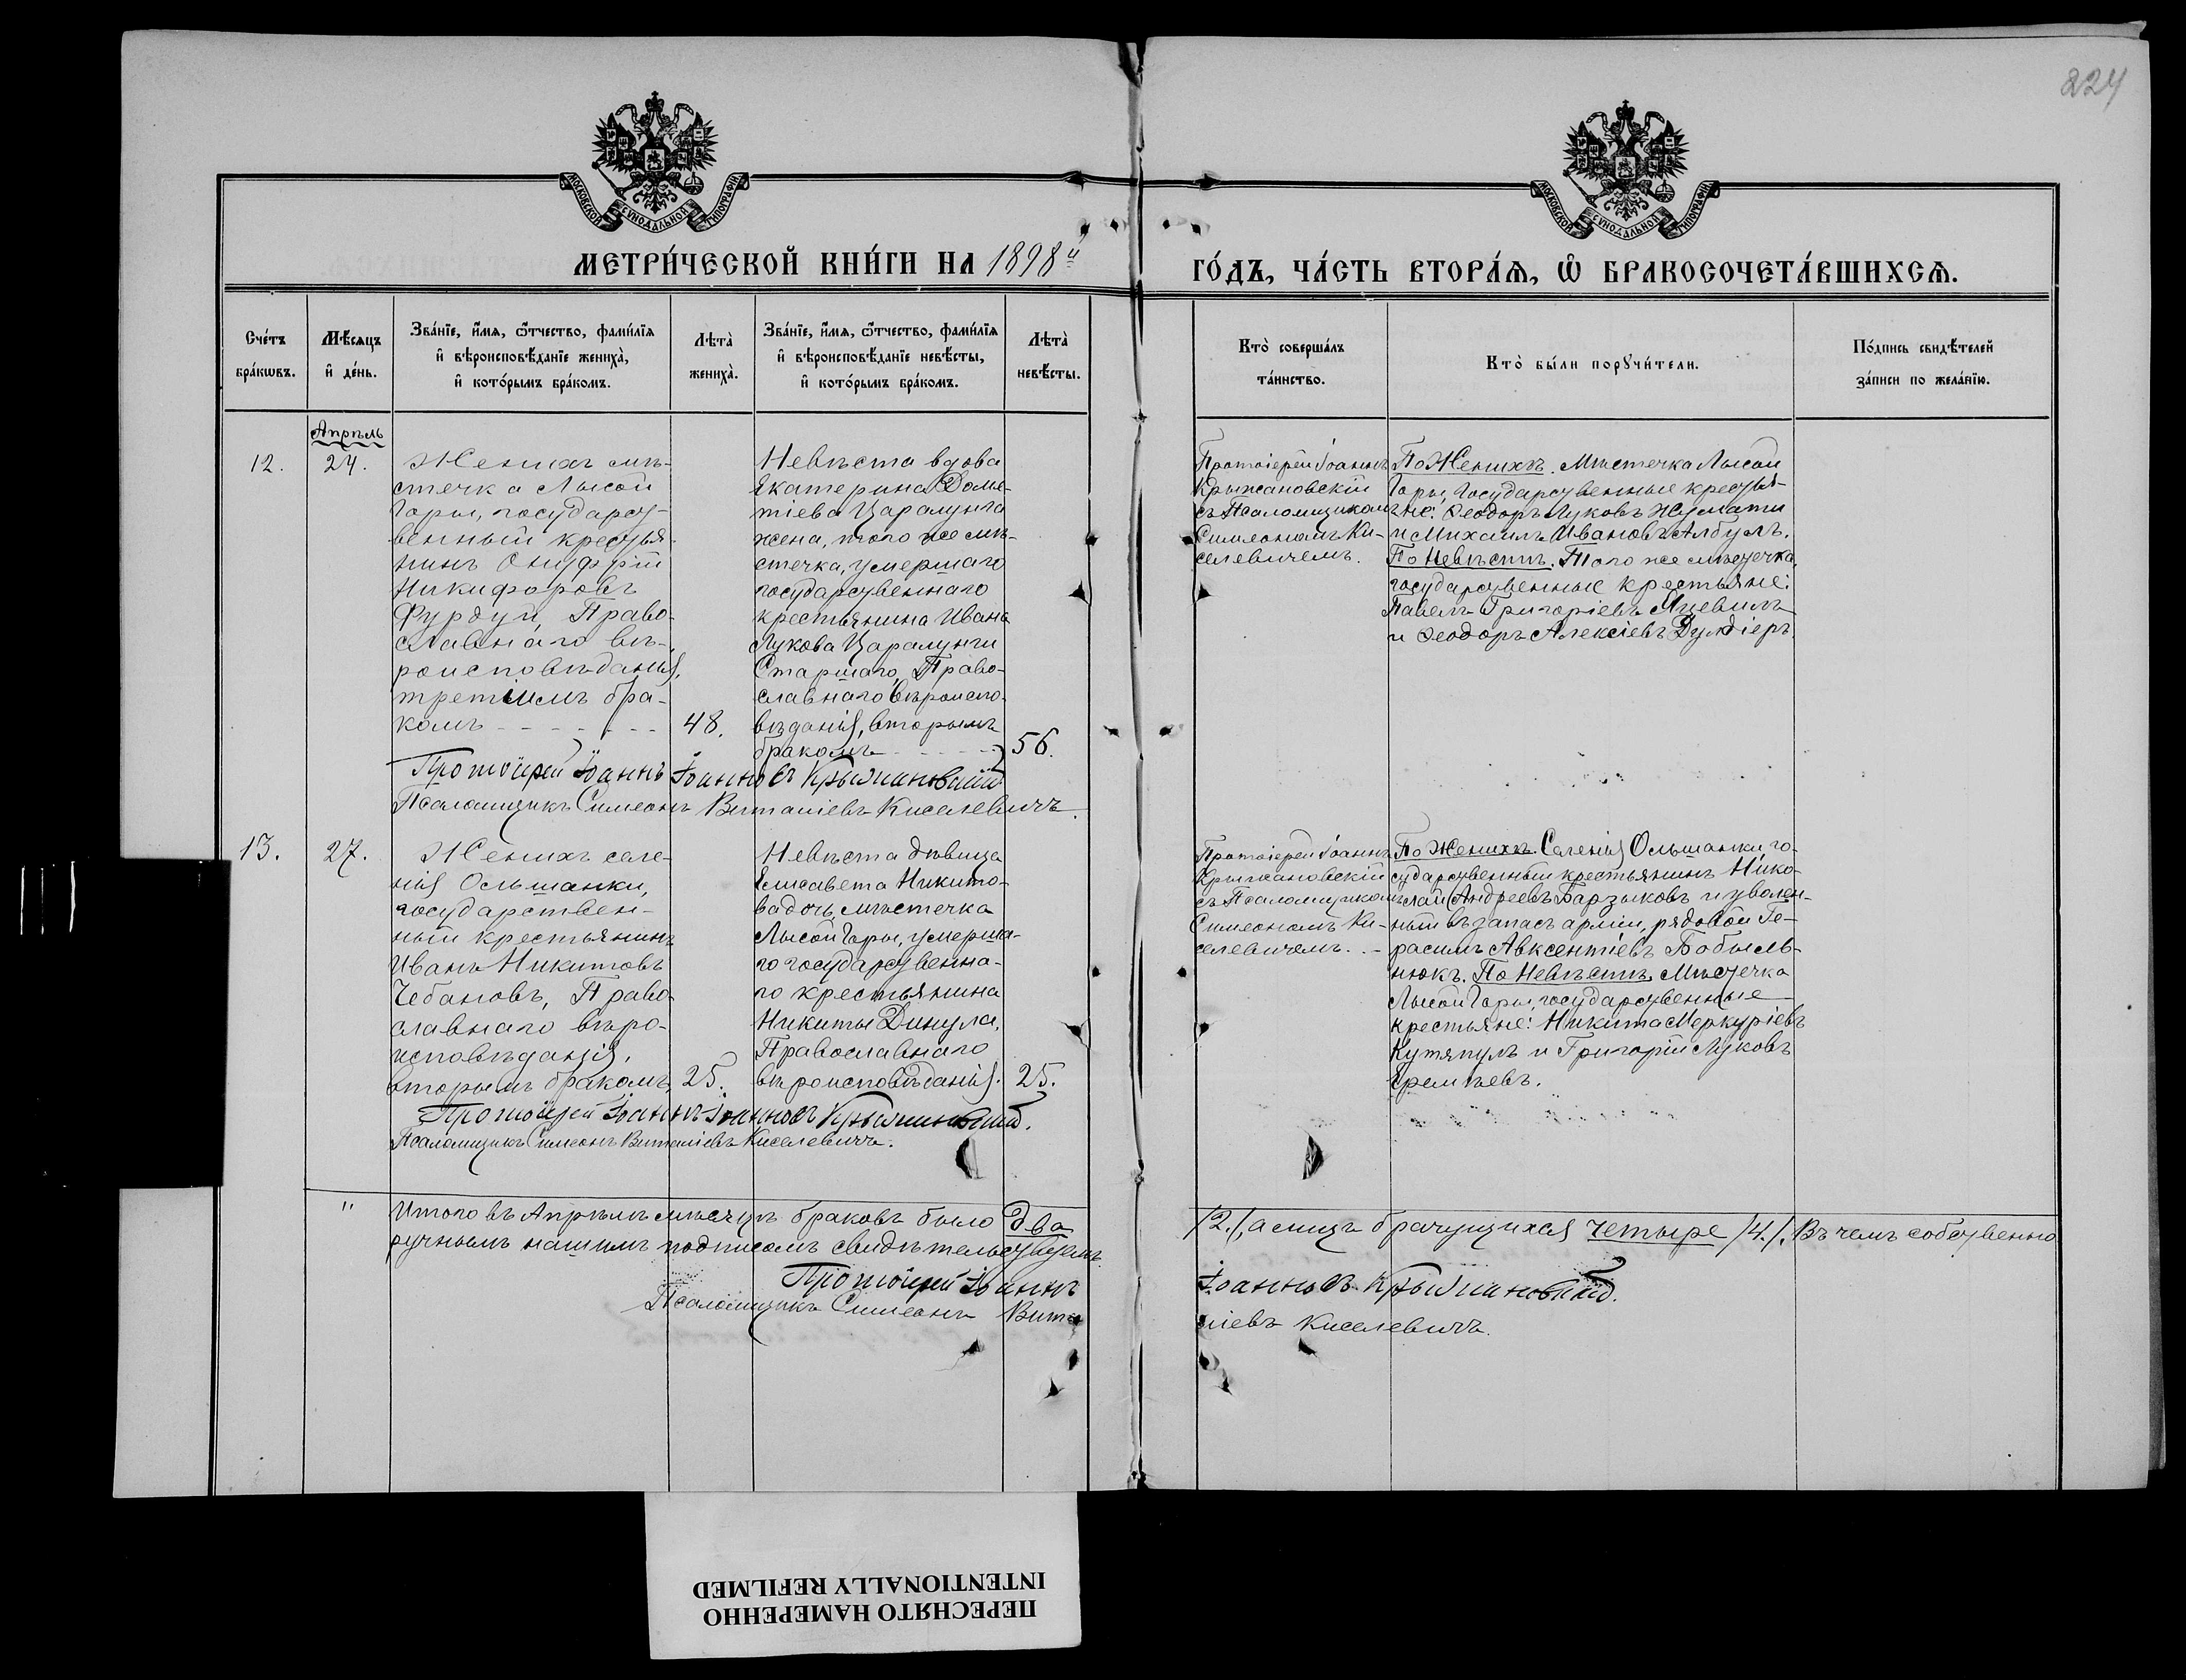 224
МОСКОВСКОЙ СѴНОДАЛЬНОЙ ТИПОГРАФІИ
МОСКОВСКОЙ СѴНОДАЛЬНОЙ ТИПОГРАФІИ
МЕТРИ́ЧЕСКОЙ КНИ́ГИ НА 1898й
ГО́ДЪ, ЧА́СТЬ ВТОРА́Ѧ, Ѡ҆ БРАКОСОЧЕТА́ВШИХСѦ.
Сче́тъ
бра́кѡвъ.
Мѣ́сяцъ
и҆ де́нь.
Зва́нїе, и҆́мя, ѻ҆́тчество, фами́лїя
и҆ вѣроисповѣ́данїе жениха̀,
и҆ кото́рымъ бра́комъ.
Лѣта̀
жениха̀.
Зва́нїе, и҆́мя, ѻ҆́тчество, фами́лїя
и҆ вѣроисповѣ́данїе невѣ́сты,
и҆ кото́рымъ бра́комъ.
Лѣта̀
невѣ́сты.
Кто̀ соверша́лъ
та́инство.
Кто̀ бы́ли порꙋчи́тели.
По́дпись свидѣ́телей
за́писи по жела́нїю.
Апрѣль
12.
24.
Женихъ мѣ-
стечка Лысой
Горы, государст-
венный крестья-
нинъ Онуфрій
Никифоровъ
Фурдуй, Право-
славнаго вѣ-
роисповѣданія,
третіимъ бра-
комъ - - - - - -
48.
Невѣста вдова
Екатерина Доме-
тіева Царалунга
жена, того же мѣ-
стечка, умершаго
государственнаго
крестьянина Ивана
Лукова Царалунги
Старшаго, Право-
славнаго вѣроиспо-
вѣданія, вторымъ
бракомъ - - - - -
56.
Протоіерей Іоаннъ
Крыжановскій
съ Псаломщикомъ
Симеономъ Ки-
селевичемъ.
По Женихѣ. Мѣстечка Лысой
Горы, Государственные крестья-
не: Ѳеодоръ Луковъ Жумати
и Михаилъ Ивановъ Албулъ.
По Невѣстѣ. Того же мѣстечка,
государственные крестьяне:
Павелъ Григоріевъ Яцевилъ
и Ѳеодоръ Алексіевъ Дулдіеръ.
Протоіерей Іоаннъ Іоанновъ Крыжановскій
Псаломщикъ Симеонъ Виталіевъ Киселевичъ.
13.
27.
Женихъ селе-
нія Ольшанки,
государствен-
ный крестьянинъ
Иванъ Никитовъ
Чебановъ, Право-
славнаго вѣро-
исповѣданія,
вторымъ бракомъ,
25.
Невѣста дѣвица
Елисавета Никито-
ва дочь, мѣстечка
Лысой Горы, умерша-
го государственна-
го крестьянина
Никиты Динула,
Православнаго
вѣроисповѣданія.
25.
Протоіерей Іоаннъ
Крыжановскій
съ Псаломщикомъ
Симеономъ Ки-
селевичемъ. -
По Женихѣ. Селенія Ольшанки го-
сударственный крестьянинъ Нико-
лай Андреевъ Барзыковъ и уволен-
ный въ запасъ арміи, рядовой Ге-
расимъ Авксентіевъ Бобыль-
нюкъ. По Невѣстѣ. Мѣстечка
Лысой Горы, государственные
крестьяне: Никита Меркуріевъ
Кутяпулъ и Григорій Луковъ
Еремѣевъ.
Протоіерей Іоаннъ Іоанновъ Крыжановскій.
Псаломщикъ Симеонъ Виталіевъ Киселевичъ.
" Итого въ Апрѣлѣ мѣсяцѣ браковъ было два /2./, а лицъ брачущихся четыре /4./. Въ чемъ собственно
ручнымъ нашимъ подписомъ свидѣтельствуемъ
Протоіерей Іоаннъ Іоанновъ Крыжановскій.
Псаломщикъ Симеонъ Виталіевъ Киселевичъ.
ПЕРЕСНЯТО НАМЕРЕННО
INTENTIONALLY REFILMED